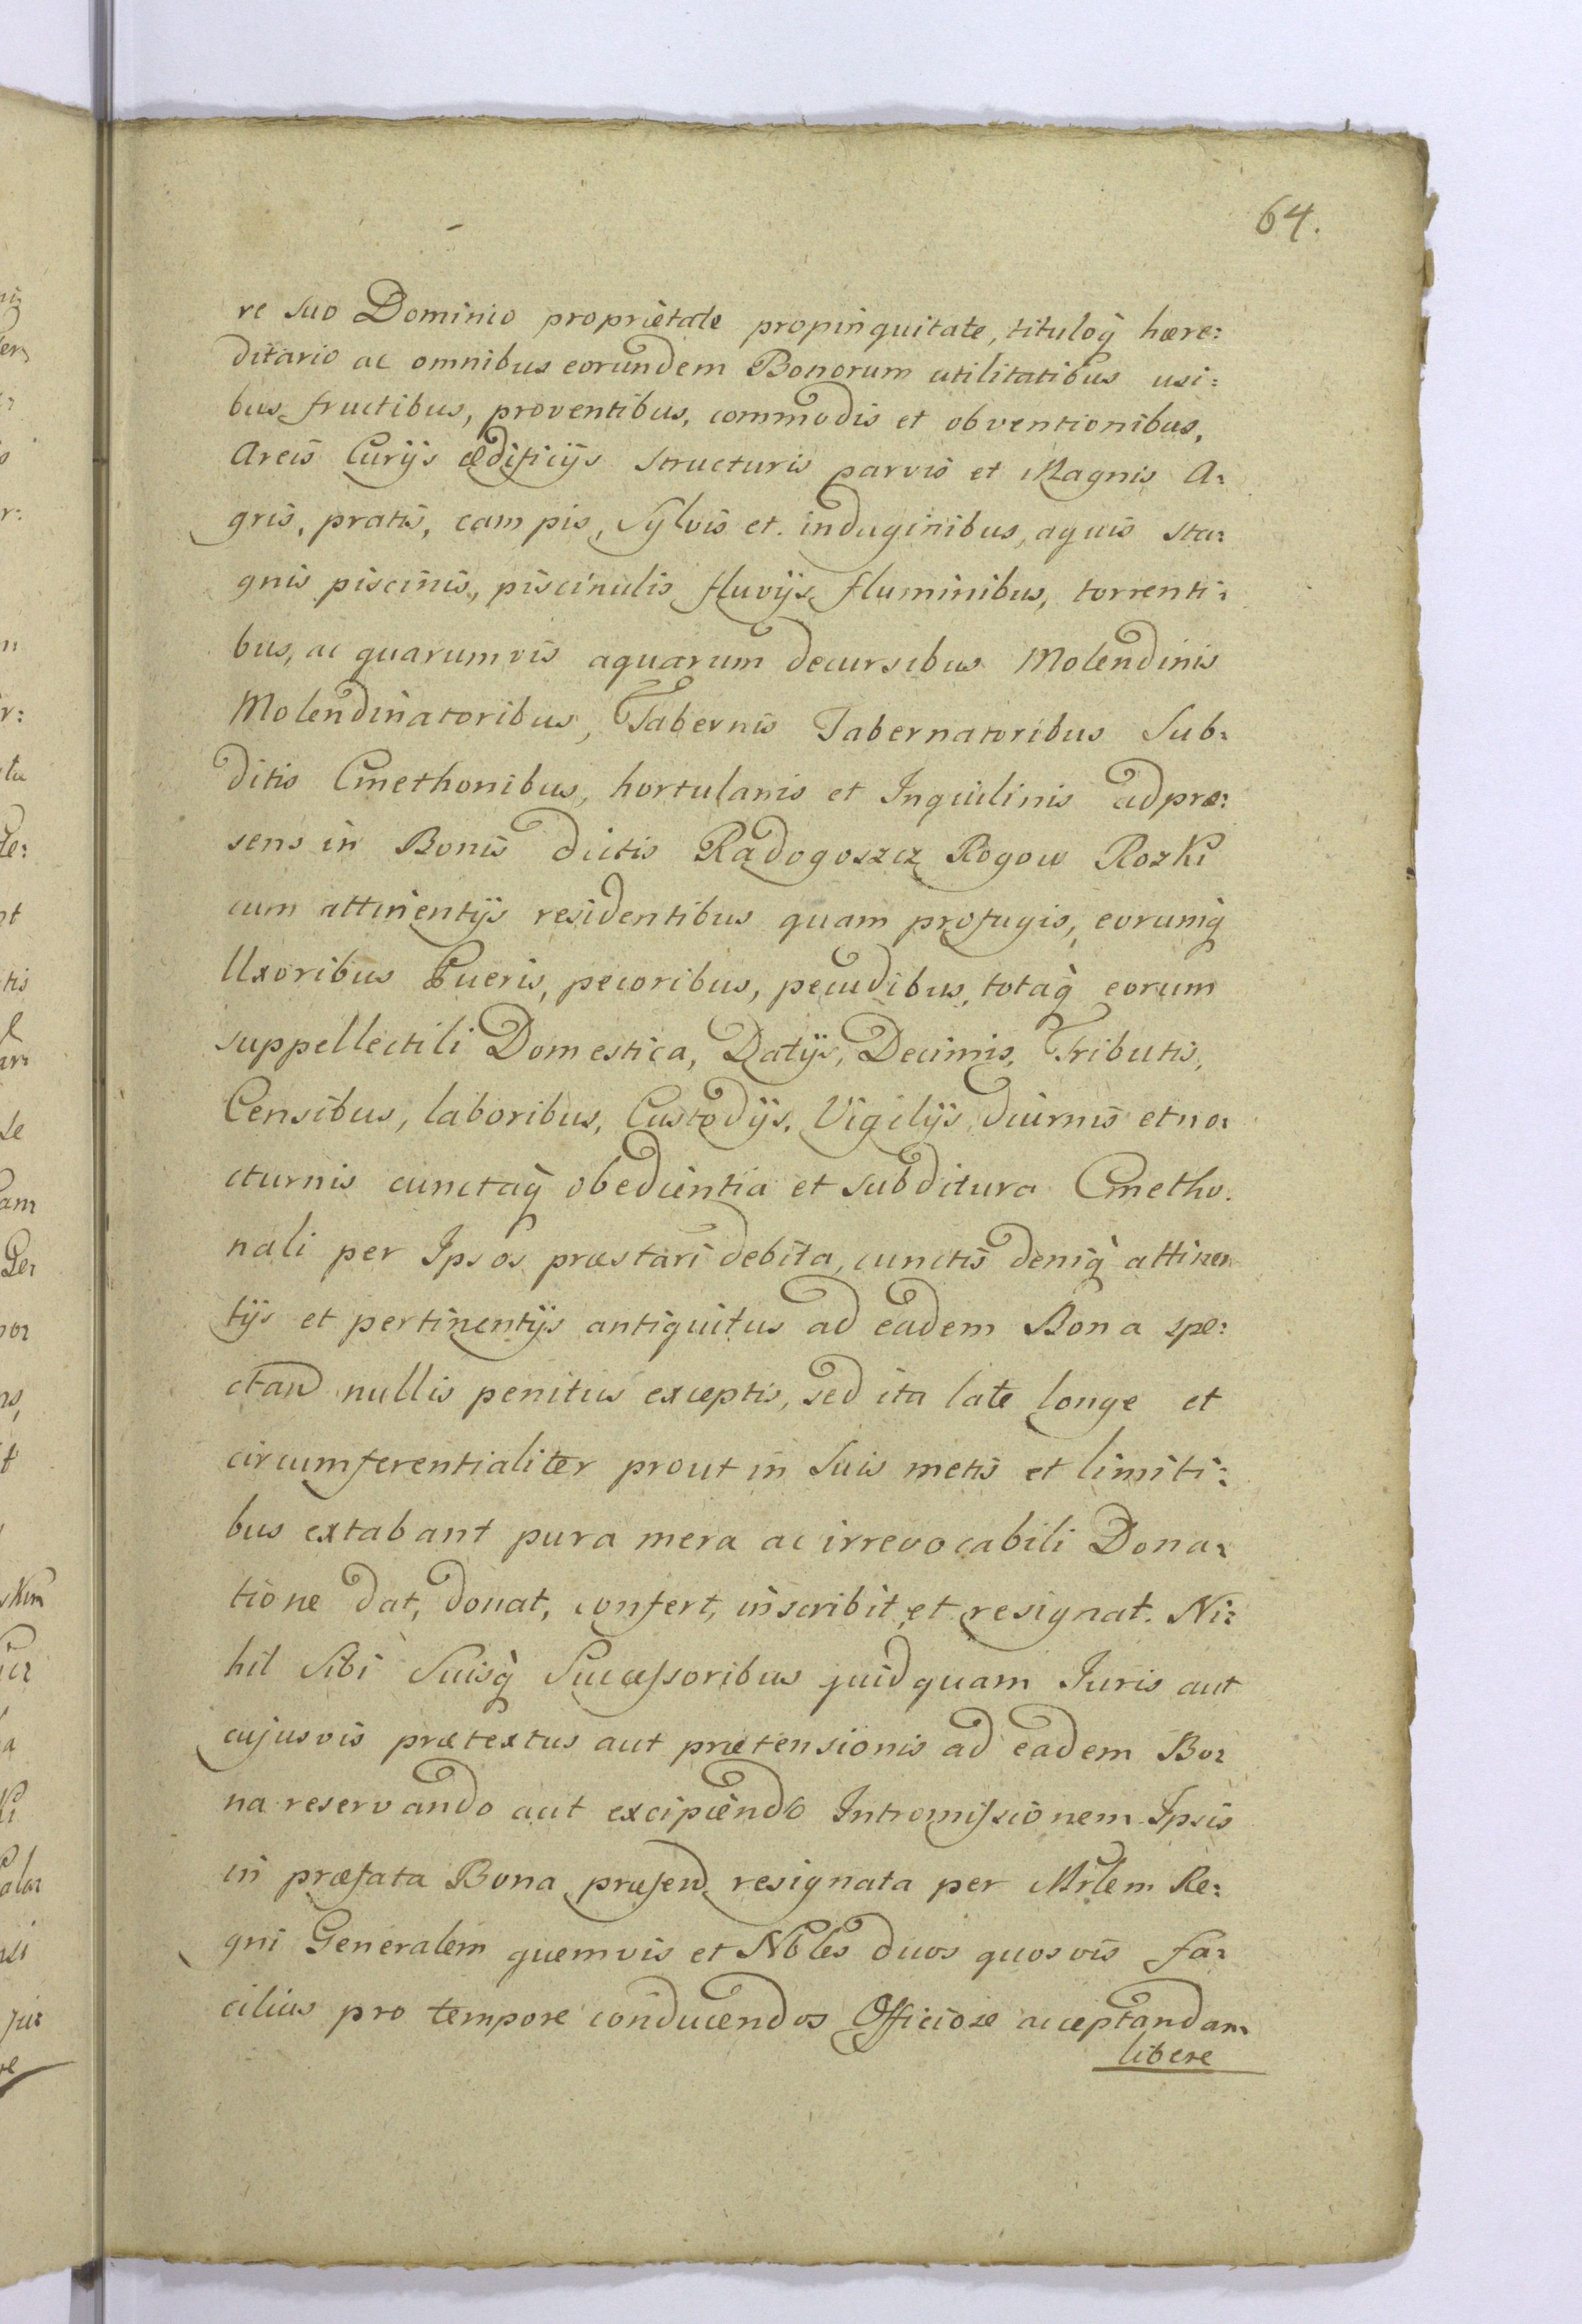 64.
re suo Dominio proprietate propinquitate, tituloq̀ hære:
ditario ac omnibus eorundem Bonorum utilitatibus usi:
bus fructibus, proventibus, commodis et obventionibus,
Areis Curijs ædificijs structuris parvis et Magnis A:
gris, pratis, campis, Sylvis et induginibus, aquis sta:
gnis piscinis, piscinulis fluvijs fluminibus, torrenti:
bus, ac quarumvis aquarum decursibus Molendinis
Molendinatoribus, Tabernis Tabernatoribus Sub:
ditis Cmethonibus, hortulanis et Inquilinis ad præ:
sens in Bonis dictis Radogoszcz Rogow Rozki
cum attinentijs residentibus quam profugis, eorumq̀
Uxoribus Pueris, pecoribus, pecudibus, totaq̀ eorum
suppellectili Domestica, Datijs, Decimis, Tributis,
Censibus, laboribus, Custodijs, Vigilijs diurnis et no:
cturnis cunctaq̀ obedientia et subditura Cmetho.
nali per Ipsos præstari debita, cunctis deniq̀ attinen
tijs et pertinentijs antiquitus ad eadem Bona spe:
ctand nullis penitus exceptis, sed ita late longe et
circumferentialiter prout in Suis metis et limiti:
bus extabant pura mera ac irrevocabili Dona:
tione dat, donat, confert, inscribit et resignat. Ni:
hil Sibi Suisq̀ Successoribus quidquam Iuris aut
cujusvis prætextus aut prætensionis ad eadem Bo:
na reservando aut excipiendo Intromissionem Ipsis
in præfata Bona præsend resignata per Mrlem Re:
gni Generalem quemvis et Nbles duos quosvis fa:
cilius pro tempore conducendos Officiose acceptandam
libere